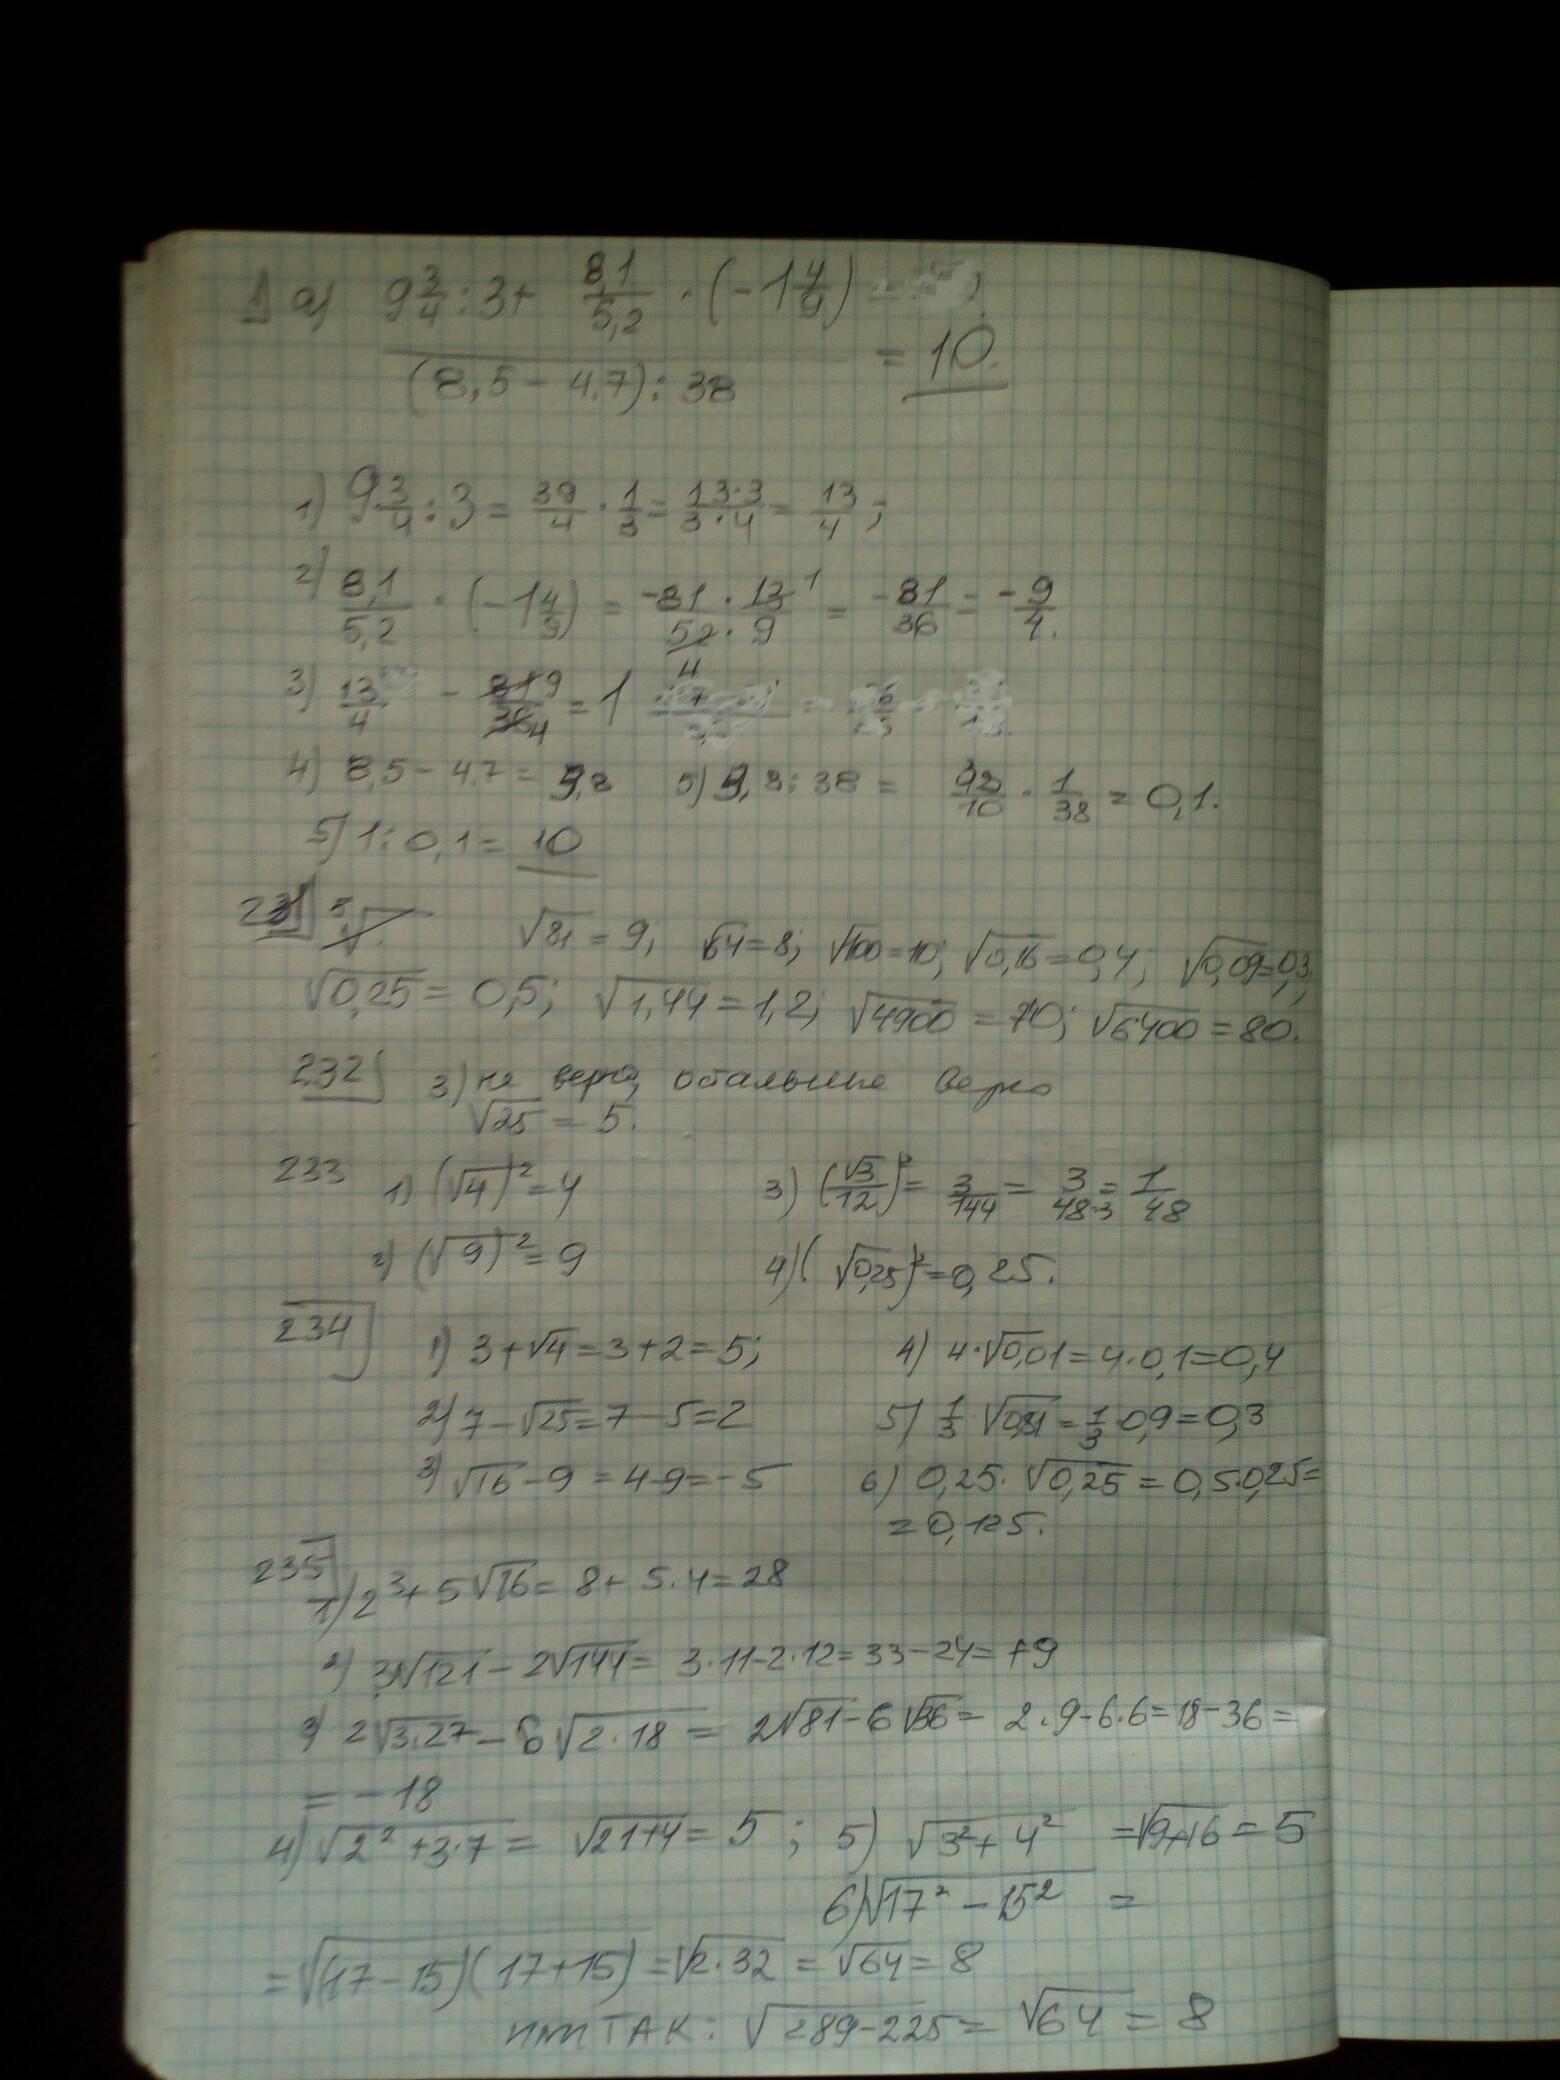 1 а) (9 3/4 : 3 + 8,1/5,2 · (-1 4/9)) / ((8,5 - 4,7) : 38) = 10.
1) 9 3/4 : 3 = 39/4 · 1/3 = 13·3/3·4 = 13/4;
2) 8,1/5,2 · (-1 4/9) = -81·13/52·9 = -81/36 = -9/4.
3) 13/4 - 9/4 = 1
4) 8,5 - 4,7 = 3,8 5) 3,8 : 38 = 38/10 · 1/38 = 0,1.
5) 1 : 0,1 = 10
231 √81 = 9; √64 = 8; √100 = 10; √0,16 = 0,4; √0,09 = 0,3;
√0,25 = 0,5; √1,44 = 1,2; √4900 = 70; √6400 = 80.
232 3) не верно, остальные верно
√25 = 5.
233 1) (√4)² = 4 3) (√3/12)² = 3/144 = 3/48·3 = 1/48
2) (√9)² = 9 4) (√0,25)² = 0,25.
234 1) 3+√4 = 3+2 = 5; 4) 4·√0,01 = 4·0,1 = 0,4
2) 7-√25 = 7-5 = 2 5) 1/3 √0,81 = 1/3·0,9 = 0,3
3) √16 - 9 = 4-9 = -5 6) 0,25·√0,25 = 0,5·0,25 =
= 0,125.
235
1) 2³ + 5√16 = 8 + 5·4 = 28
2) 3√121 - 2√144 = 3·11-2·12 = 33-24 = +9
3) 2√3·27 - 6√2·18 = 2√81 - 6√36 = 2·9-6·6 = 18-36 =
= -18
4) √2²+3·7 = √21+4 = 5; 5) √3²+4² = √9+16 = 5
6) √17² - 15² =
= √(17-15)(17+15) = √2·32 = √64 = 8
или так: √289-225 = √64 = 8